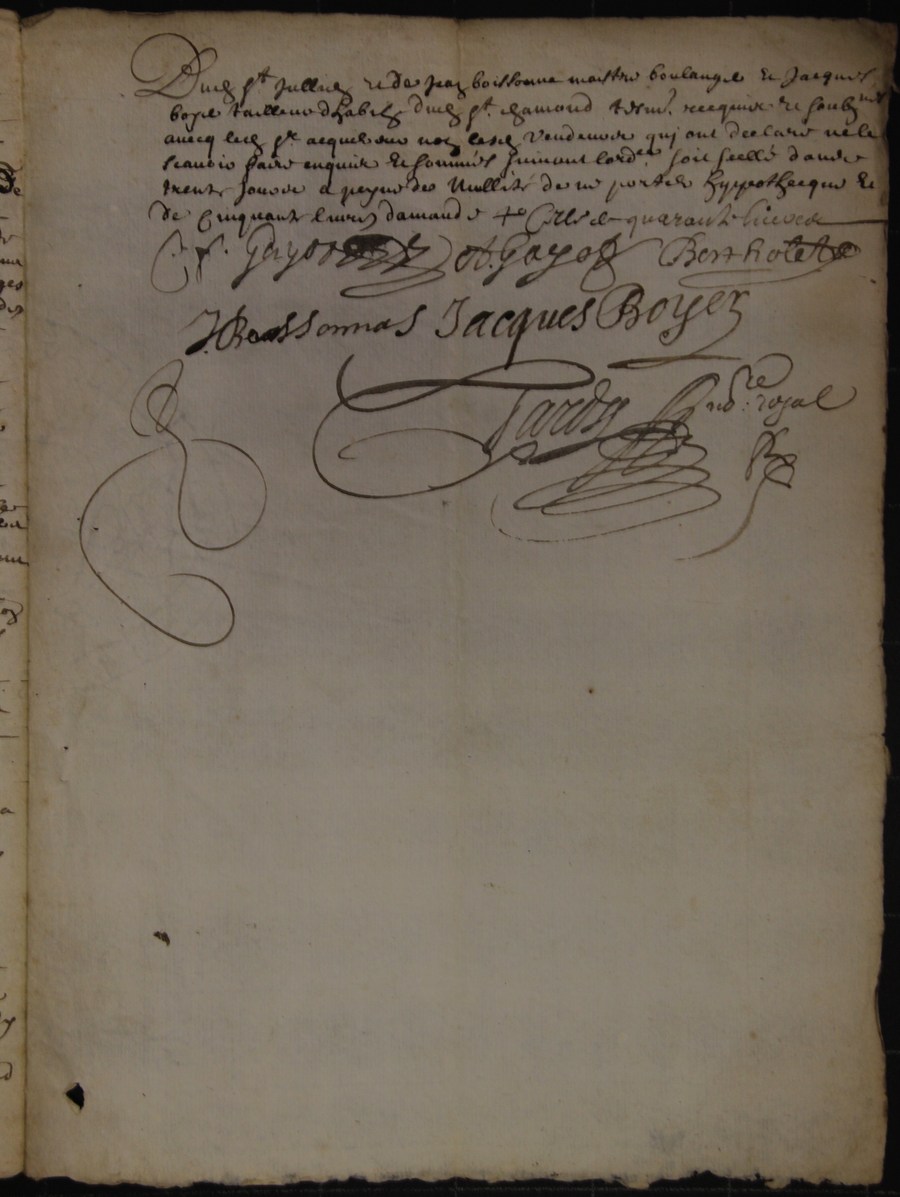 Dud. st Jullien et de Jean boissonna maistre boulanger et Jacques
boyer tailleur dhabits dud. st chamond tesm. recquis et soubz.nes
avecq led. sr acquereur non lesd. vendeurs qui ont declaré ne le
scavoir faire enquis et sommés suivant lord.ce soit scellé dans
trente jours a peyne des nullités de ne porter hyppothecque et
de cinquante livres damande + quarante livres
Gayot A. Gayot Bertholet
J. Boissonnas Jacques Boyer
Tardy no.re royal